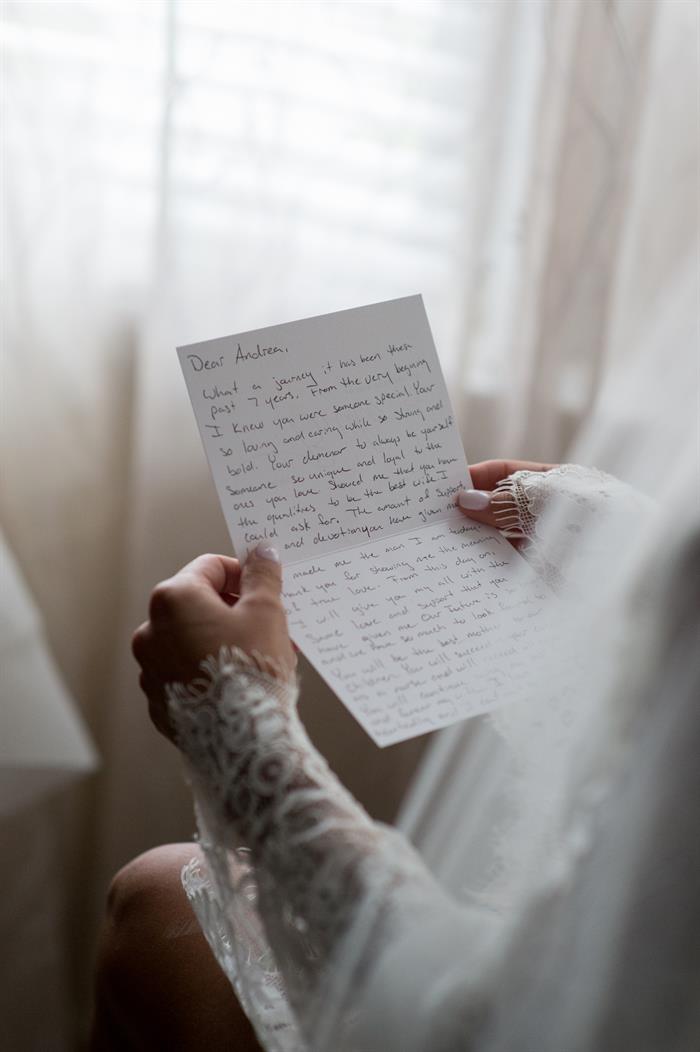 Dear Andrea,
What a journey it has been these
past 7 years. From the very begining
I knew you were someone special. Your
so loving and caring while so strong and
bold. Your demenor to always be yourself
someone so unique and loyal to the
ones you love showed me that you have
the qualities to be the best wife I
could ask for. The amount of support
and devotion you have given me
made me the man I am today
thank you for showing me the meaning
of true love. From this day on,
I will give you my all with the
same love and support that you
have given me. Our future is so
and we have so much to look forward to
You will be the best mother to our
children. You will succeed in your
as a nurse and will
You will continue
and forever my wife. I
and I